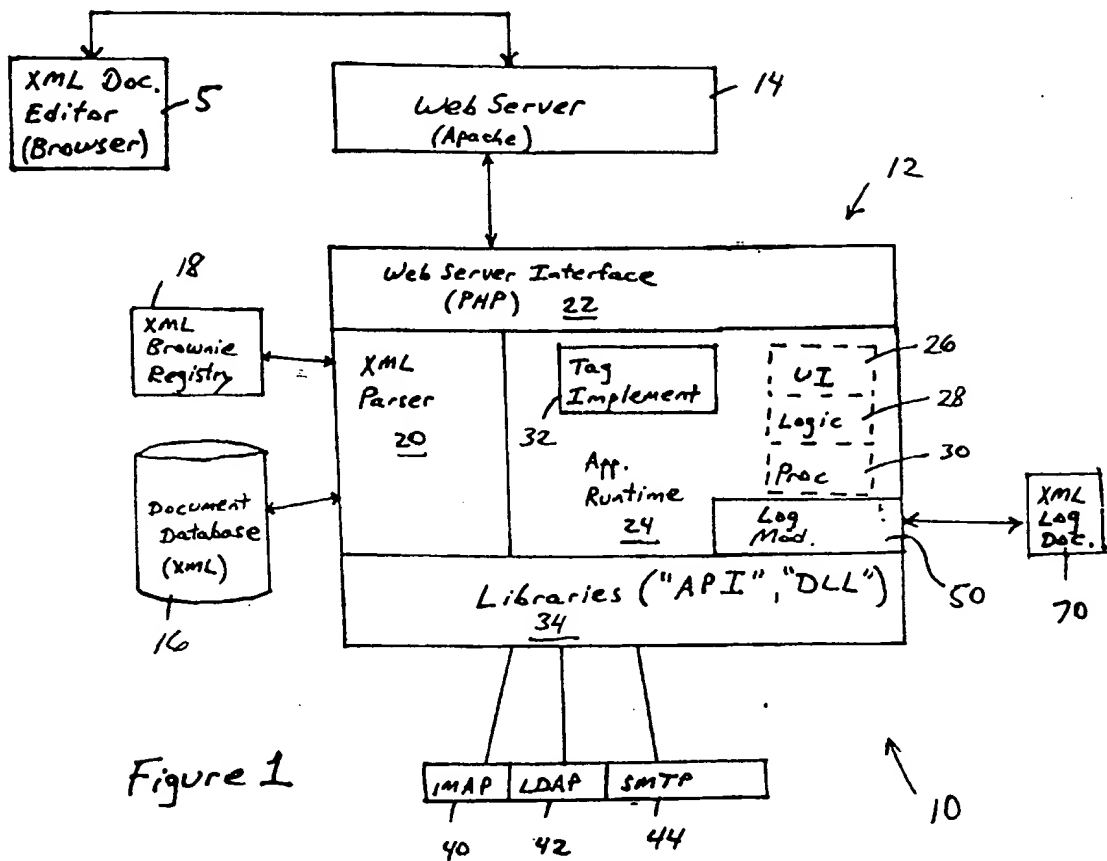 XML Doc.
Editor
(Browser)
5
Web Server
(Apache)
14
12
Web Server Interface
(PHP) 22
18
XML
Brownie
Registry
XML
Parser
20
Tag
Implement
32
UI
26
Logic
28
Proc
30
App.
Runtime
24
Log
Mod.
50
XML
Log
Doc.
70
Document
Database
(XML)
16
Libraries ("API", "DLL")
34
IMAP LDAP SMTP
40 42 44
Figure 1
10